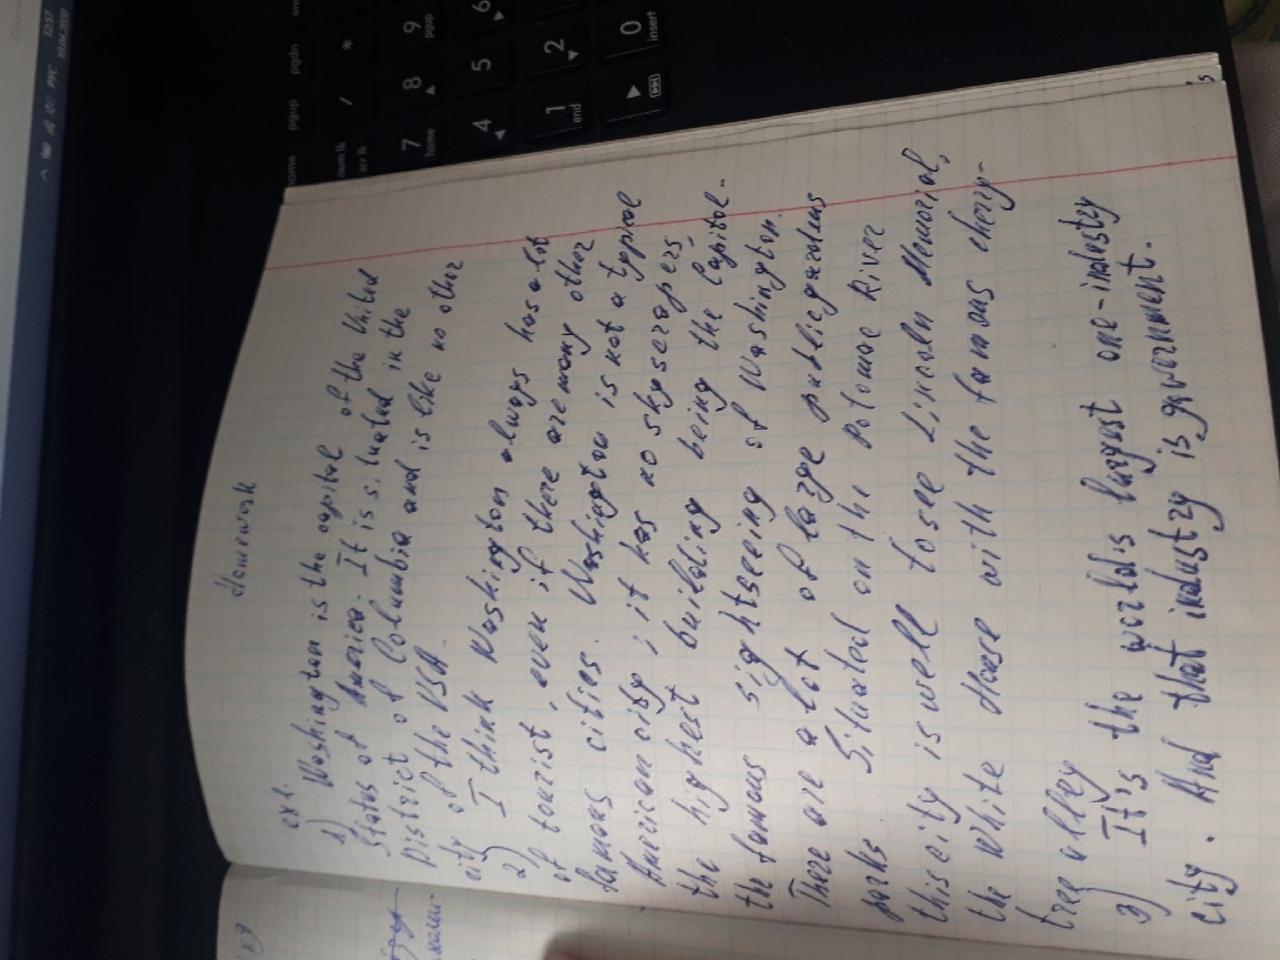 Homework
ex1.
1) Washington is the capital of the United
States of America. It is situated in the
District of Columbia and is like no other
city of the USA.
2) I think Washington always has a lot
of tourist, even if there are many other
famous cities. Washington is not a typical
American city; it has no skyscrapers,
the highest building being the Capitol-
the famous sightseeing of Washington.
There are a lot of large public gardens
parks. Situated on the Potomac River
this city is well to see Lincoln Memorial,
the White House with the famous cherry-
tree alley
3) It's the worlds largest one-industry
city. And that industry is government.
home
pgup
pgdn
num lk
scr lk
/
*
7
home
8
9
pgup
4
5
6
1
end
2
0
insert
РУС
12:57